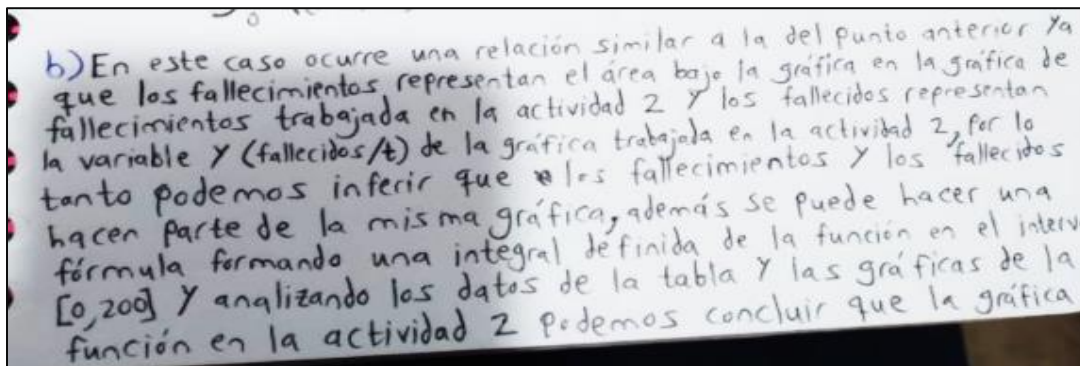 b) En este caso ocurre una relación similar a la del punto anterior ya
que los fallecimientos representan el área bajo la gráfica en la gráfica de
fallecimientos trabajada en la actividad 2 y los fallecidos representan
la variable y (fallecidos/t) de la gráfica trabajada en la actividad 2, por lo
tanto podemos inferir que los fallecimientos y los fallecidos
hacen parte de la misma gráfica, además se puede hacer una
fórmula formando una integral definida de la función en el interv
[0,200] y analizando los datos de la tabla y las gráficas de la
función en la actividad 2 podemos concluir que la gráfica